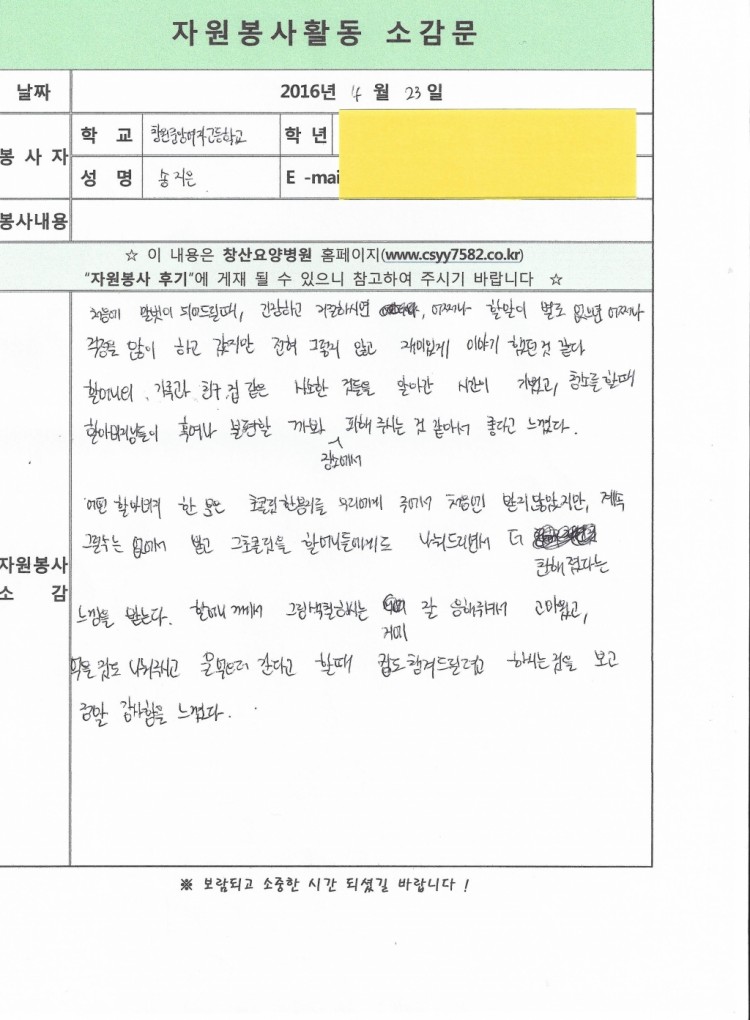 자원봉사활동 소감문
날짜 2016년 4 월 23 일
봉사자 학 교 창원중앙여자고등학교 학 년
성 명 송지은 E -mai
봉사내용
☆ 이 내용은 창산요양병원 홈페이지(www.csyy7582.co.kr)
"자원봉사 후기"에 게재 될 수 있으니 참고하여 주시기 바랍니다 ☆
처음에 말벗이 되어드릴때, 긴장하고 거절하시면 어쩌나 할말이 별로 없으면 어쩌나
걱정을 많이 하고 갔지만 전혀 그렇지 않고 재미있게 이야기 했던것 같다
할머니의 가족과 친구,집 같은 사소한 것들을 알아간 시간이 기뻤고, 청소를 할때
할아버지님들이 혹여나 불편할 까봐 피해 주시는 것 같아서 좋다고 느꼈다.
장소에서
어떤 할아버지 한 분은 초콜릿한봉지를 우리에게 주어서 처음엔 받지않았지만, 계속
그럴수는 없어서 받고 그초콜릿을 할머니들에게도 나눠드리면서 더
친해 졌다는
느낌을 받는다. 할머니 께서 그림색칠하시는 잘 응해줘서 고마웠고,
먹을 집도 나눠주시고 물뜨러 간다고 할때 컵도챙겨드릴려고 하시는걸을 보고
정말 감사함을 느꼈다.
자원봉사
소 감
※ 보람되고 소중한 시간 되셨길 바랍니다 !